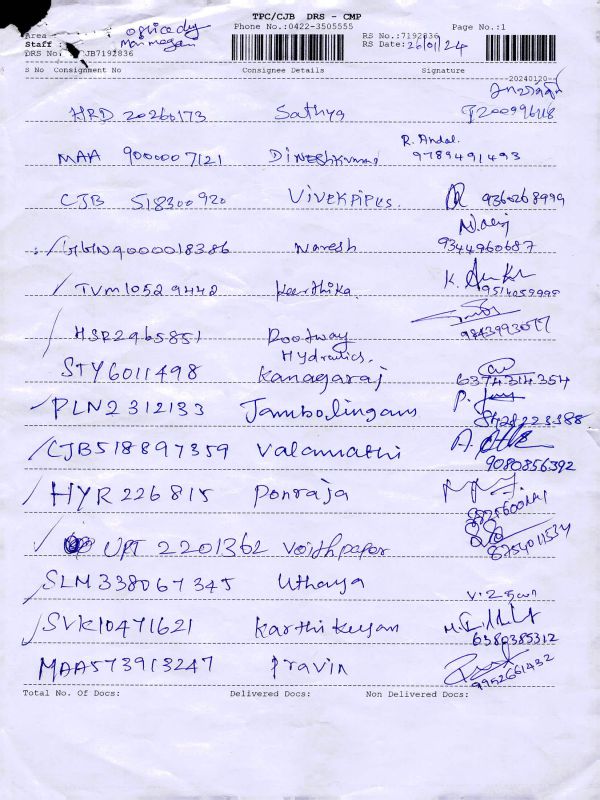 TPC/CJB DRS - CMP
Phone No.:0422-3505555 Page No.:1
Area RS No.:7192836
Staff : RS Date:26/01/24
DRS No: CJB7192836
S No Consignment No Consignee Details Signature
20240120
HRD 20260173 Sathya
MAA 9000007121 Dineshkumar R. Andal. 9789491493
CJB 518300920 VIVEKPIPES. 9360268999
9000018386 Naresh 9344960687
TVM10529442 Keerthika. K.
HSR2965851 Rootway Hydraulics.
STY6011498 Kanagaraj 6374314354
PLN2312133 Jambolingam P.
CJB518897359 Valarmathi A. 9080856392
HYR226815 Ponraja
UPT 2201362 Voithpaper 8754011534
SLM338067345 Uthaya
SVK10471621 Karthikeyan 6380385312
MAA573913247 Pravin 9952661432
Total No. Of Docs: Delivered Docs: Non Delivered Docs: